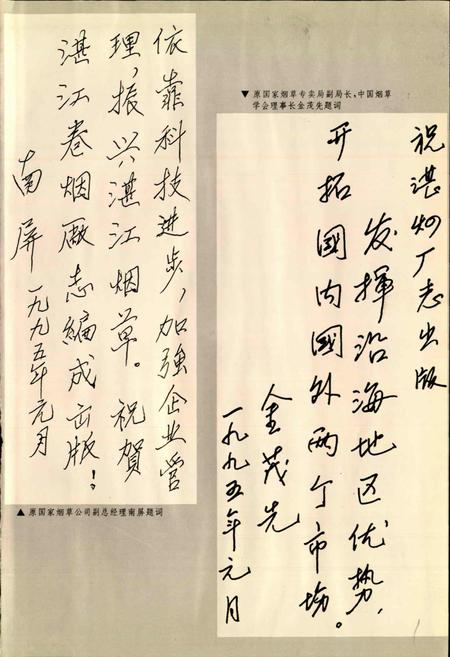 ▼ 原国家烟草专卖局副局长、中国烟草
学会理事长金茂先题词
祝湛烟厂志出版
发挥沿海地区优势，
开拓國内國外两个市场。
金茂先
一九九五年元月
依靠科技进步，加強企业营
理，振兴湛江烟草。祝賀
湛江卷烟厰志编成出版！
南屏
一九九五年元月
▲ 原国家烟草公司副总经理南屏题词